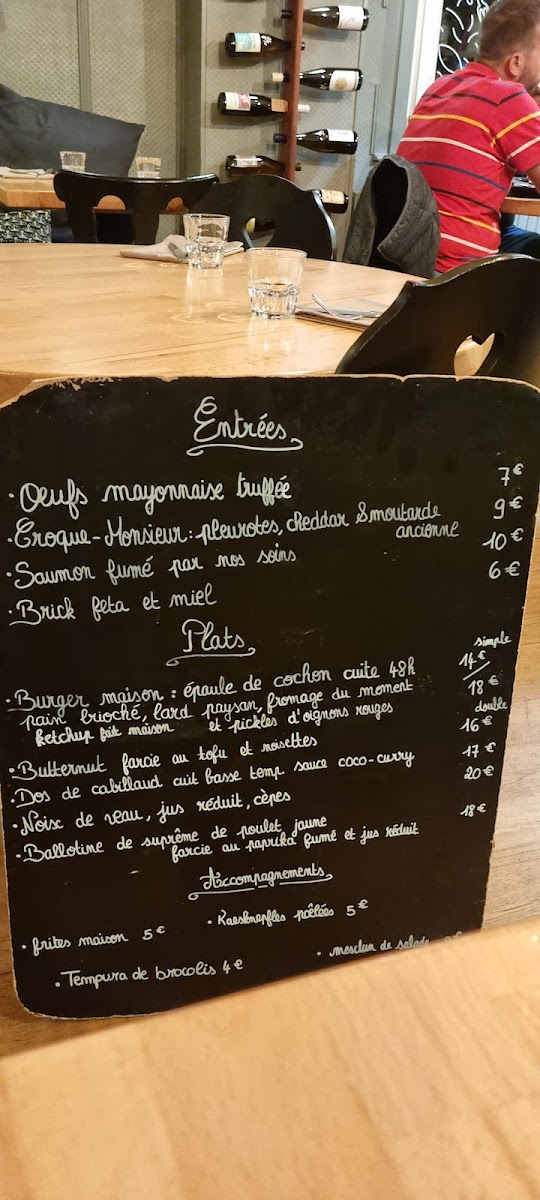 Entrées
· Oeufs mayonnaise truffée 7€
· Croque-Monsieur : pleurotes, cheddar & moutarde ancienne 9€
· Saumon fumé par nos soins 10€
· Brick feta et miel 6€
Plats
· Burger maison : épaule de cochon cuite 48h simple 14€ / 18€ double
pain brioché, lard paysan, fromage du moment
ketchup fait maison et pickles d'oignons rouges
· Butternut farcie au tofu et noisettes 16€
· Dos de cabillaud cuit basse temp sauce coco-curry 17€
· Noix de veau, jus réduit, cèpes 20€
· Ballotine de suprême de poulet jaune 18€
farcie au paprika fumé et jus réduit
Accompagnements
· Kaesknepfles poêlées 5€
· frites maison 5€
· mesclun de salade
· Tempura de brocolis 4€